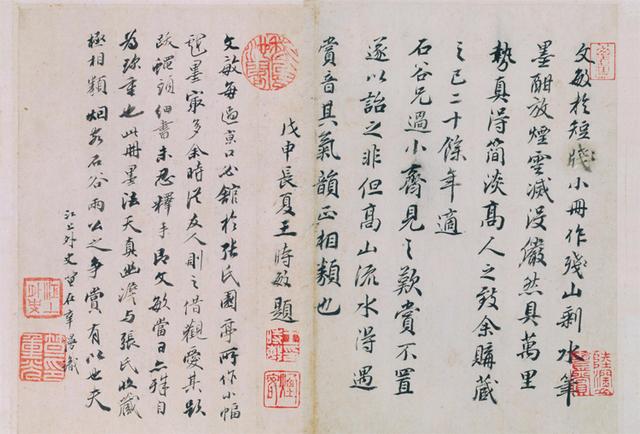 文敏於短牋小冊作殘山剩水筆
墨酣放煙雲滅沒儼然具萬里
勢真得簡淡高人之致余購藏
之已二十餘年適
石谷兄過小齋見之歎賞不置
遂以詒之非但高山流水得遇
賞音其氣韻正相類也
戊申長夏王時敏題
文敏每過京口必館於張氏園亭所作小幅
墨家多余時從友人則之借觀愛其題
跋蠅頭細書未忍釋手即文敏當日亦殊自
為珍重也此冊墨法天真幽澹與張氏收藏
極相類烟客石谷兩公之爭賞有以也夫
江上外史笪在辛漫識
江上外史